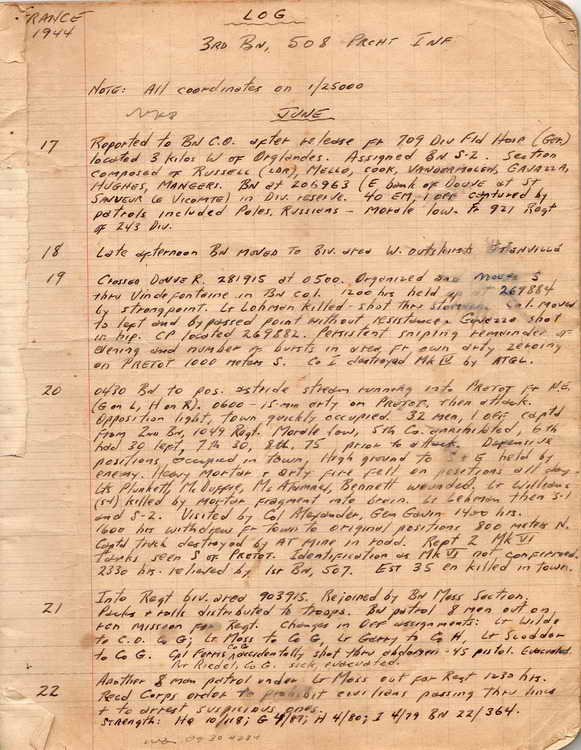 FRANCE
1944
LOG
3RD BN, 508 PRCHT INF
NOTE: All coordinates on 1/25000
JUNE
17 Reported to BN C.O. after release fr 709 Div Fld Hosp (Ger)
located 3 kilos W of Orglandes. Assigned BN S-2. Section
composed of RUSSELL (LDR), MELLO, COOK, VANDERMOLEN, GAVAZZA,
HUGHES, MANGERS. BN at 206963 (E bank of DOUVE at ST
SAUVEUR le VICOMTE) in Div. reserve. 40 EM, 1 OFF captured by
patrols included Poles, Russians - Morale low. Fr 921 Regt
of 243 Div.
18 Late afternoon BN MOVED TO Biv. area W. outskirts
19 Crossed DOUVE R. 281915 at 0500. Organized and moved S
thru Vindefontaine in BN Col. 1200 hrs held up at 269884
by strongpoint. Lt Lehman killed - shot thru Col. moved
to left and bypassed point without resistance. Gavazza shot
in hip. CP located 269882. Persistent sniping remainder of
evening and number of bursts in area fr own arty zeroing
on PRETOT 1000 meters S. Co I destroyed Mk IV by ATGL.
20 0430 BN to pos. astride stream running into PRETOT fr N.E.
(G on L, H on R). 0600 - 15 min arty on PRETOT, then attack.
Opposition light, town quickly occupied. 32 men, 1 OFF captd
from 2nd BN, 1049 Regt. Morale low, 5th Co. annihilated, 6th
had 30 left, 7th 50, 8th 75 prior to attack. Defensive
positions occupied in town, High ground to S & E held by
enemy. Heavy mortar & arty fire fell on positions all day.
Lts Plunkett, McDuffie, Bennett wounded. Lt Williams
(S4) killed by mortar fragment into brain. Lt Lehman then S-1
and S-2. Visited by Col Alexander, Gen Gavin 1400 hrs.
1600 hrs withdrew fr town to original positions 800 meters N.
Captd truck destroyed by AT mine in road. Rept 2 Mk VI
tanks seen S of PRETOT. Identification as Mk VI not confirmed.
2330 hrs. relieved by 1st BN, 507. EST 35 en killed in town.
21 Into Regt biv. area 903915. Rejoined by BN Moss Section.
Packs & rolls distributed to troops. BN patrol 8 men out on
rcn mission for Regt. Changes in OFF assignments: Lt Wilde
to C.O. Co G; Lt Moss to Co G, Lt Garry to Co H, Lt Scudder
to Co G. Cpl Ferris Co G accidentally shot thru abdomen - 45 pistol. Evacuated.
Pvt Riedel, Co G. sick, evacuated.
Another 8 man patrol under Lt Moss out for Regt 1230 hrs.
22 Recd Corps order to prohibit civilians passing thru lines
& to arrest suspicious ones.
STRENGTH: HQ 10/118; G 4/87; H 4/80; I 4/79 BN 22/364.